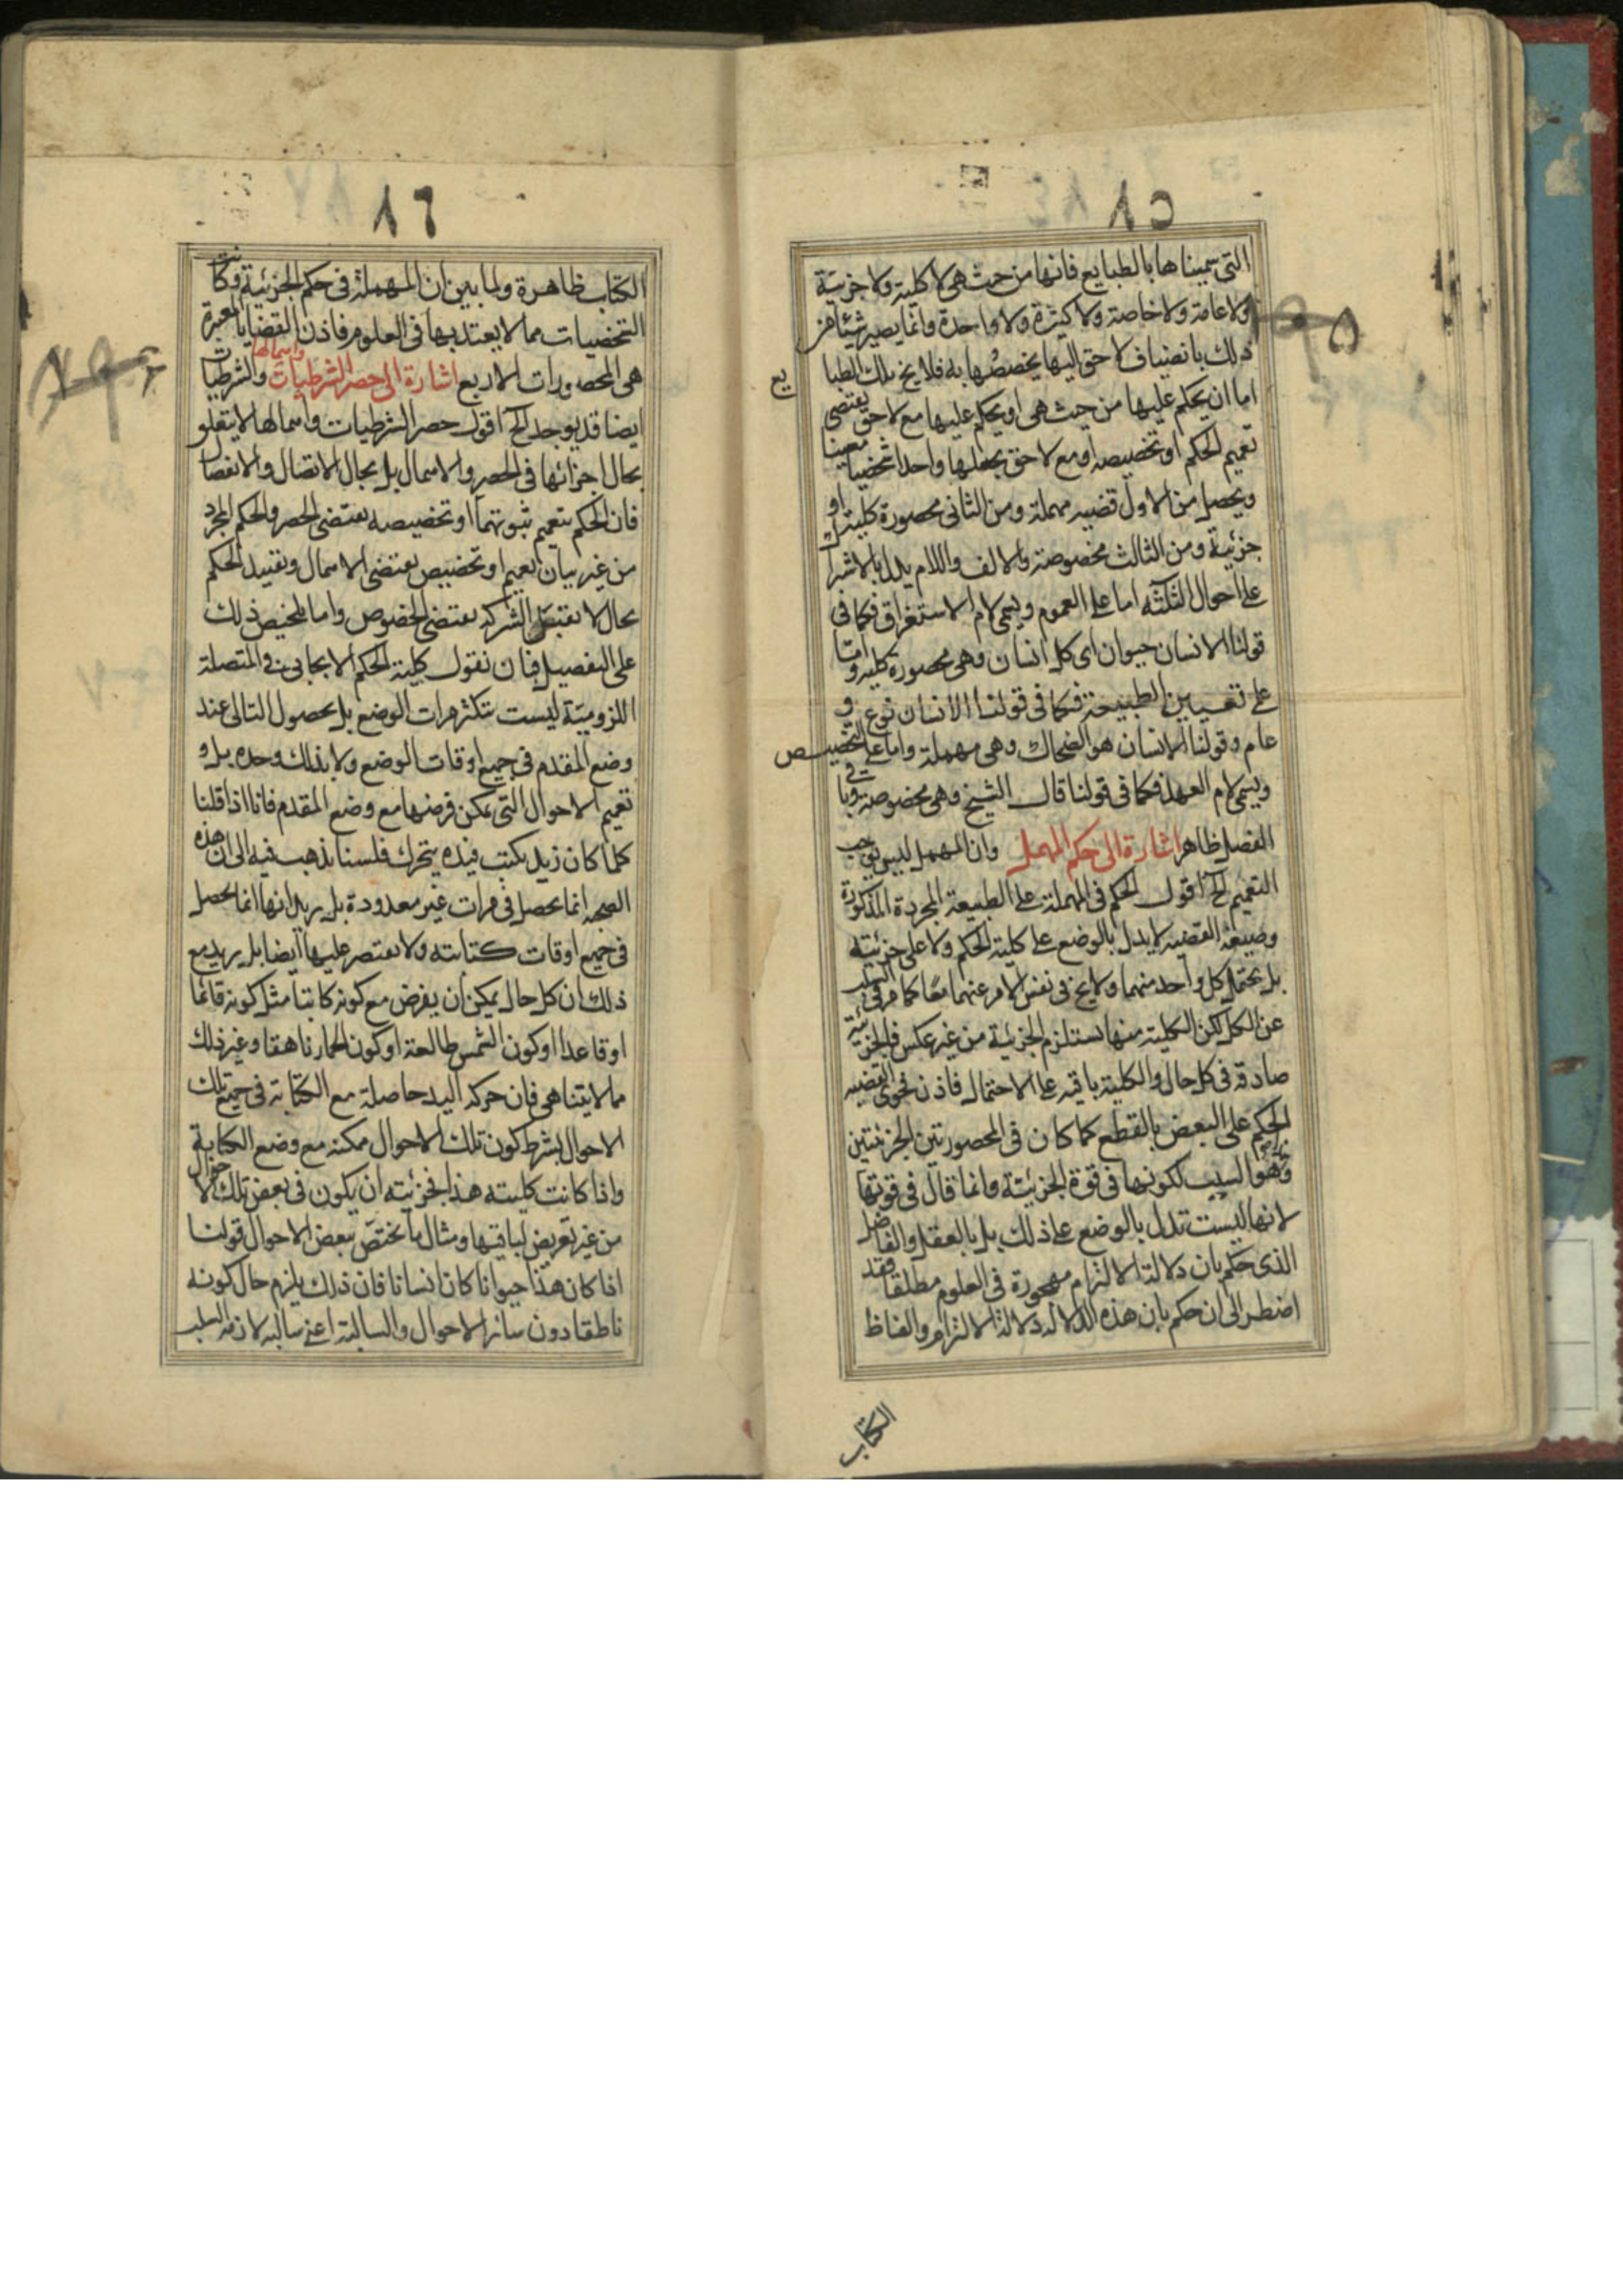 ٨٥
التى سميناها بالطبايع فانها من حيث هى لا كلية ولا جزئية
ولا عامة ولا خاصة ولا كثيرة ولا واحدة وانما يصير شيئا من
ذلك بانضياف لاحق اليها يخصصها به فلا يخ تلك الطبا
يع
اما ان يحكم عليها من حيث هى او يحكم عليها مع لاحق يقتضى
تعميم الحكم او تخصيصه او مع لاحق يجعلها واحدا شخصيا معينا
ويحصل من الاول قضيه مهملة ومن الثانى محصورة كلية او
جزئية ومن الثالث مخصوصة والالف واللام يدل بالاشترا
على احوال الثلثه اما على العموم ويسمى لام الاستغراق فكما فى
قولنا الانسان حيوان اى كل انسان وهى محصورة كليه واما
على تعيين الطبيعة فكما فى قولنا الانسان نوع و
عام وقولنا الانسان هو الضحاك وهى مهملة واما على التخصيص
ويسمى لام العهد فكما فى قولنا قال الشيخ وهى مخصوصة وباقى
الفصل ظاهر اشارة الى حكم المهمل وان المهمل ليس يوجب
التعميم الخ اقول الحكم فى المهملة على الطبيعة المجردة المذكورة
وصيغة القضيه لا يدل بالوضع على كلية الحكم ولا على جزئيته
بل يحتمل كل واحد منهما ولا يخ فى نفس الامر عنهما معًا كما مر فى السلب
عن الكل لكن الكلية منها تستلزم الجزئية من غير عكس فالجزئية
صادقة فى كل حال والكلية باقيه على الاحتمال فاذن فحوى القضيه
الحكم على البعض بالقطع كما كان فى المحصورتين الجزئيتين
وهو السبب لكونها فى قوة الجزئية وانما قال فى قوتها
لانها ليست تدل بالوضع على ذلك بل بالعقل والفاضل
الذى حكم بان دلالة الالتزام مهجورة فى العلوم مطلقا فقد
اضطر الى ان حكم بان هذه الدلاله دلالة الالتزام والفاظ
الكتاب
٨٦
الكتاب ظاهرة ولما بين ان المهملة فى حكم الجزئية وكانت
الشخصيات مما لا يعتد بها فى العلوم فاذن القضايا المعتبرة
هى المحصورات الاربع اشارة الى حصر الشرطيات واهمالها والشرطيات
ايضا قد يوجد الخ اقول حصر الشرطيات واهمالها لا يتعلق
بحال اجزائها فى الحصر والاهمال بل بحال الاتصال والانفصال
فان الحكم بتعميم ثبوتهما او تخصيصه يقتضى الحصر والحكم المجرد
من غير بيان تعميم او تخصيص يقتضى الاهمال وتقييد الحكم
بحال لا يقتضى الشركه يقتضى الخصوص واما تلخيص ذلك
على التفصيل فبان نقول كلية الحكم الايجابى فى المتصلة
اللزومية ليست بتكثر مرات الوضع بل بحصول التالى عند
وضع المقدم فى جميع اوقات الوضع ولا بذلك وحده بل و
تعميم الاحوال التى يمكن فرضها مع وضع المقدم فانا اذا قلنا
كلما كان زيد يكتب فيده يتحرك فلسنا نذهب فيه الى ان هذه
الصحبه انما يحصل فى مرات غير معدودة بل يريد انها انما تحصل
فى جميع اوقات كتابته ولا يقتصر عليها ايضا بل يريد مع
ذلك ان كل حال يمكن ان يفرض مع كونه كاتبا مثل كونه قائما
او قاعدا او كون الشمس طالعة او كون الحمار ناهقا وغير ذلك
مما لا يتناهى فان حركه اليد حاصلة مع الكتابة فى جميع تلك
الاحوال بشرط كون تلك الاحوال ممكنه مع وضع الكتابة
واذا كانت كليته هذا فجزئيته ان يكون فى بعض تلك الاحوال
من غير تعريض لباقيها ومثال ما يختص ببعض الاحوال قولنا
اذا كان هذا حيوانا كان انسانا فان ذلك يلزم حال كونه
ناطقا دون سائر الاحوال والسالبة اعنى سالبه لازمه السلب